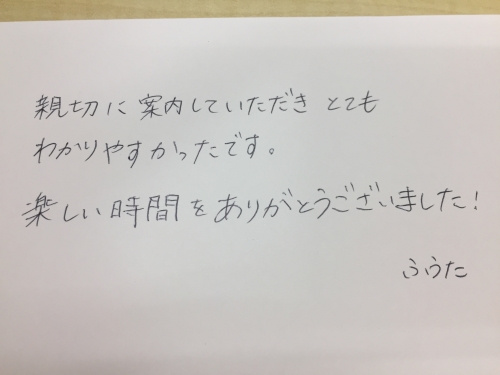 親切に案内していただき とても
わかりやすかったです。
楽しい時間をありがとうございました!
ふうた